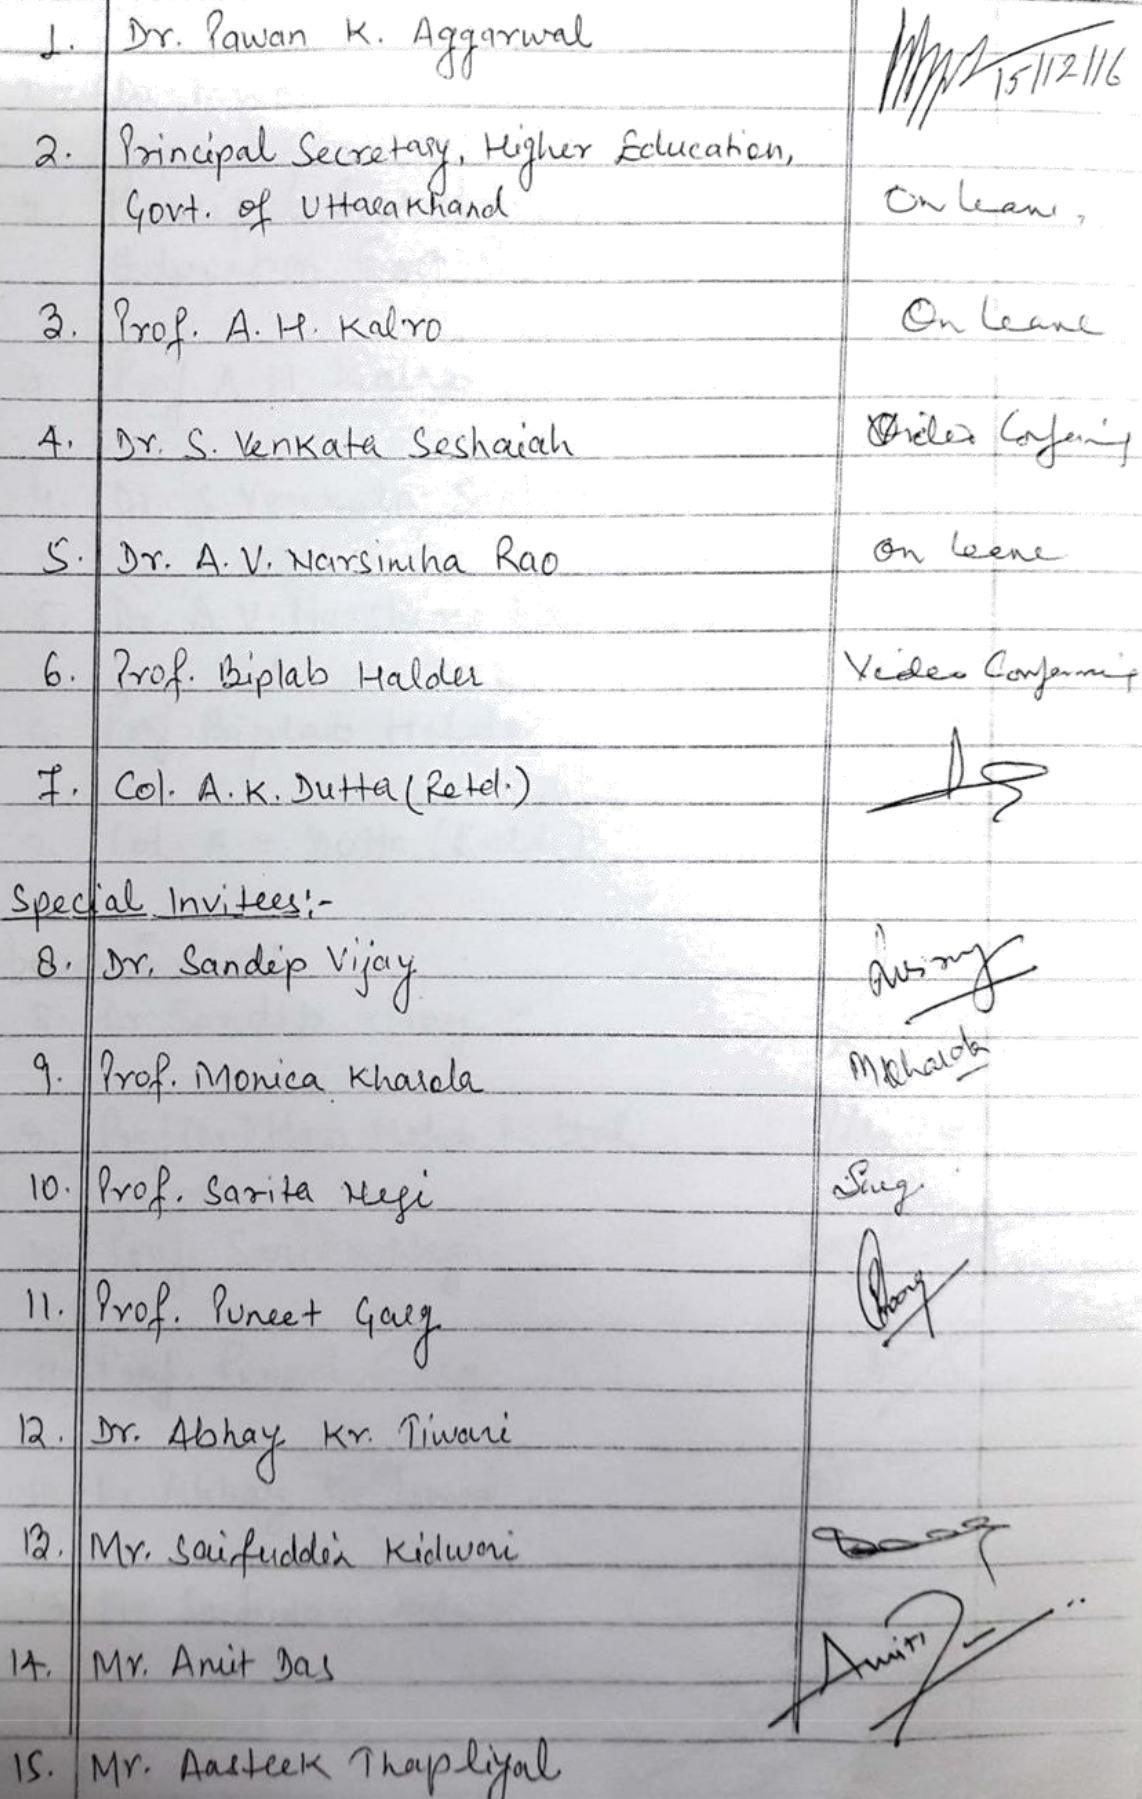 1. Dr. Pawan K. Aggarwal 15/12/16
2. Principal Secretary, Higher Education,
Govt. of Uttarakhand On leave,
3. Prof. A. H. Kalro On leave
4. Dr. S. Venkata Seshaiah Video Conferencing
5. Dr. A. V. Narsimha Rao On leave
6. Prof. Biplab Halder Video Conferencing
7. Col. A. K. Dutta (Retd.)
Special Invitees:-
8. Dr. Sandip Vijay
9. Prof. Monica Kharola MKharola
10. Prof. Sarita Negi
11. Prof. Puneet Garg
12. Dr. Abhay Kr. Tiwari
13. Mr. Saifuddin Kidwai
14. Mr. Amit Das Amit
15. Mr. Aasteek Thapliyal